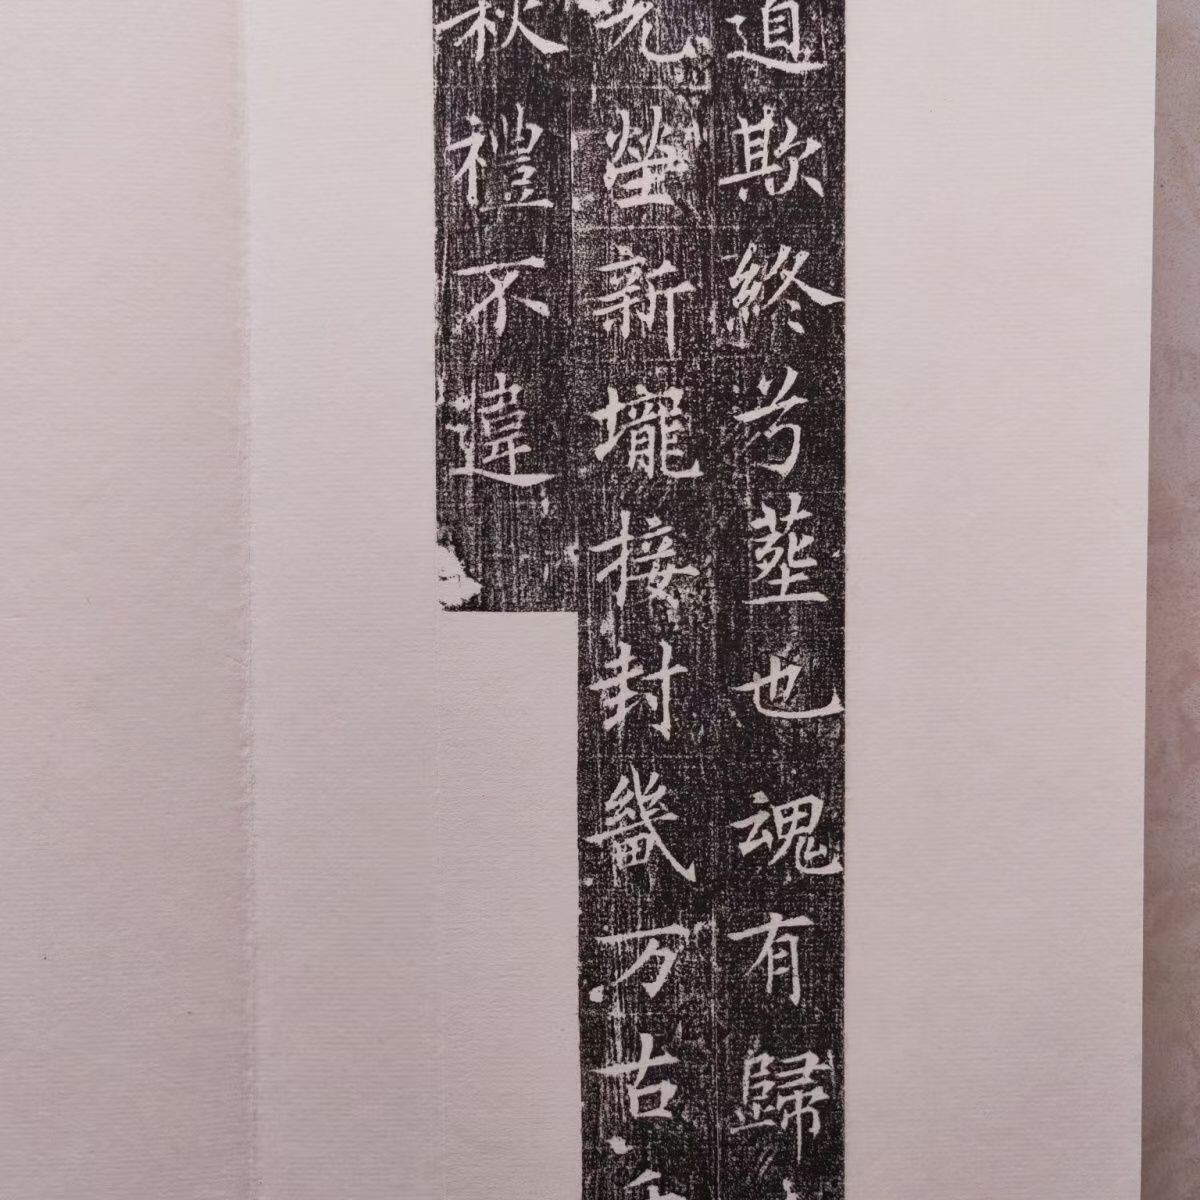 道欺終芳塟也魂有歸
塋新壠接封畿万古
秋禮不違